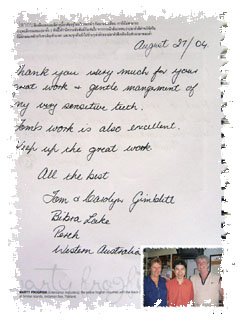 August 27/04.
Thank you very much for your
great work & gentle mangement of
my very sensitive teeth.
Tom's work is also excellent.
Keep up the great work
All the best
Tom & Carolyn Gimblett
Bibra Lake
Perth
Western Australia